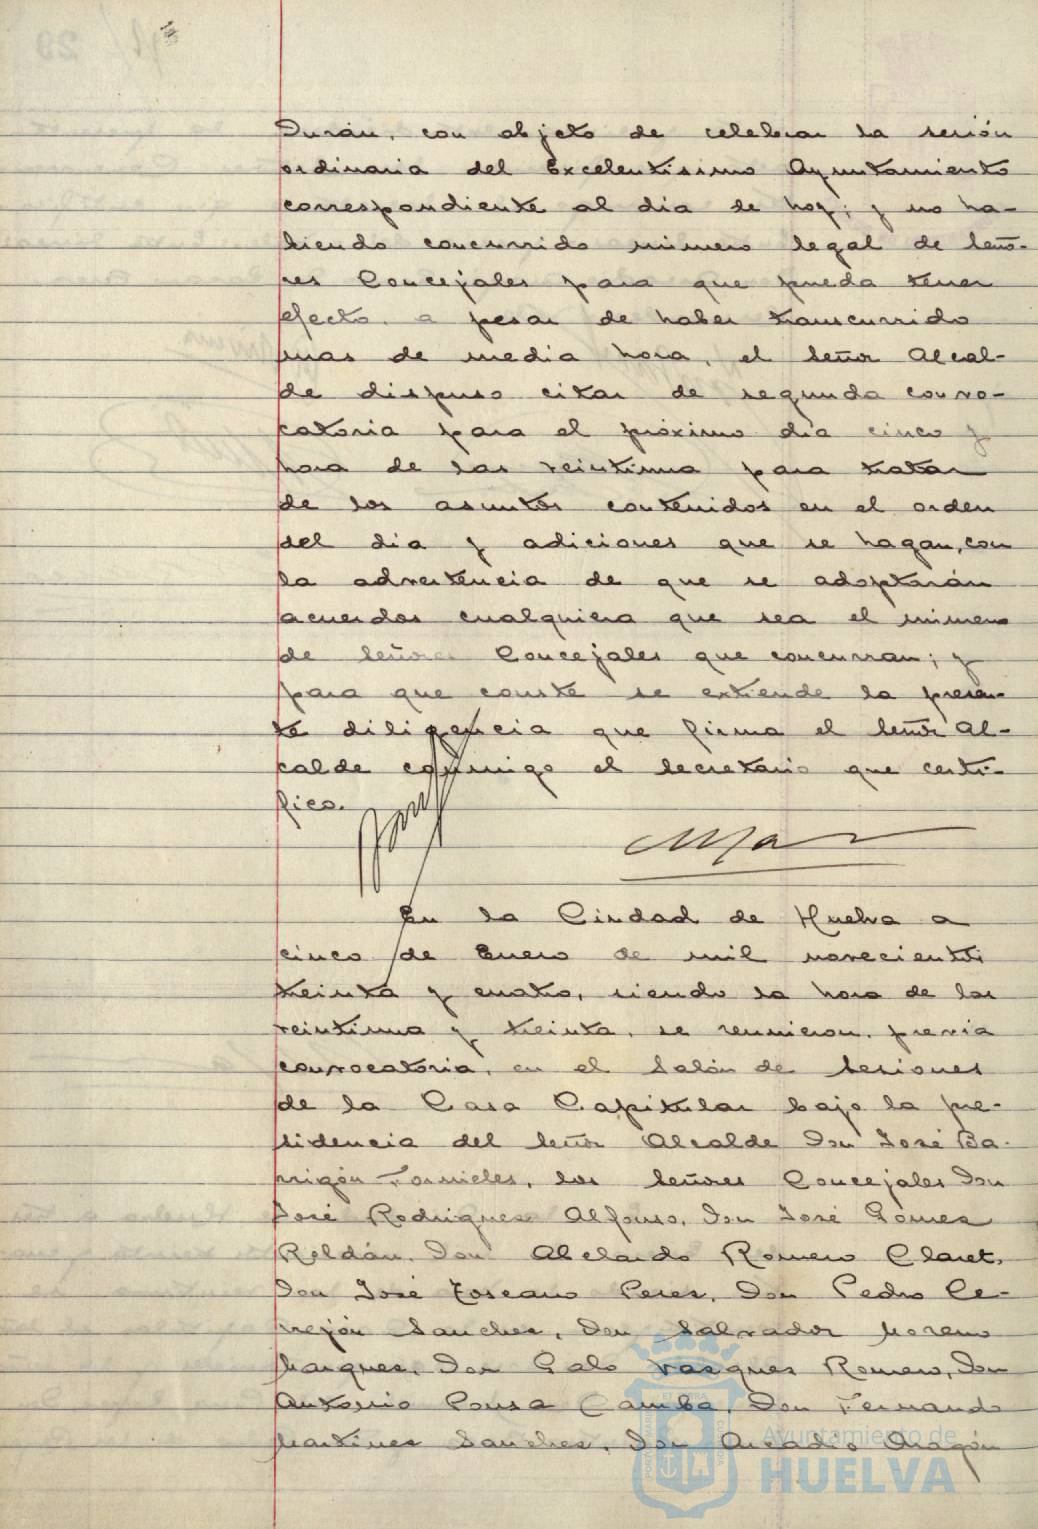 Durán, con objeto de celebrar la sesión
ordinaria del Excelentísimo Ayuntamiento
correspondiente al día de hoy; y no ha-
biendo concurrido número legal de Seño-
res Concejales para que pueda tener
efecto, a pesar de haber transcurrido
mas de media hora, el Señor Alcal-
de dispuso citar de segunda convo-
catoria para el próximo día cinco y
hora de las veintiuna para tratar
de los asuntos contenidos en el orden
del día y adiciones que se hagan, con
la advertencia de que se adoptarán
acuerdos cualquiera que sea el número
de Señores Concejales que concurran; y
para que conste se extiende la presen-
te diligencia que firma el Señor Al-
calde conmigo el Secretario que certi-
fico.
En la Ciudad de Huelva a
cinco de Enero de mil novecientos
treinta y cuatro, siendo la hora de las
veintiuna y treinta, se reunieron, previa
convocatoria, en el Salón de Sesiones
de la Casa Capitular bajo la pre-
sidencia del Señor Alcalde Don José Ba-
rrigón Fornieles, los Señores Concejales Don
José Rodrigues Alfonso, Don José Gómes
Roldán, Don Abelardo Romero Claret,
Don José Toscano Peres, Don Pedro Ce-
rrejón Sanches, Don Salvador Moreno
Marques, Don Galo Vasques Romero, Don
Antonio Pousa Camba, Don Fernando
Martines Sanches, Don Arcadio Aragón
Ayuntamiento de
HUELVA